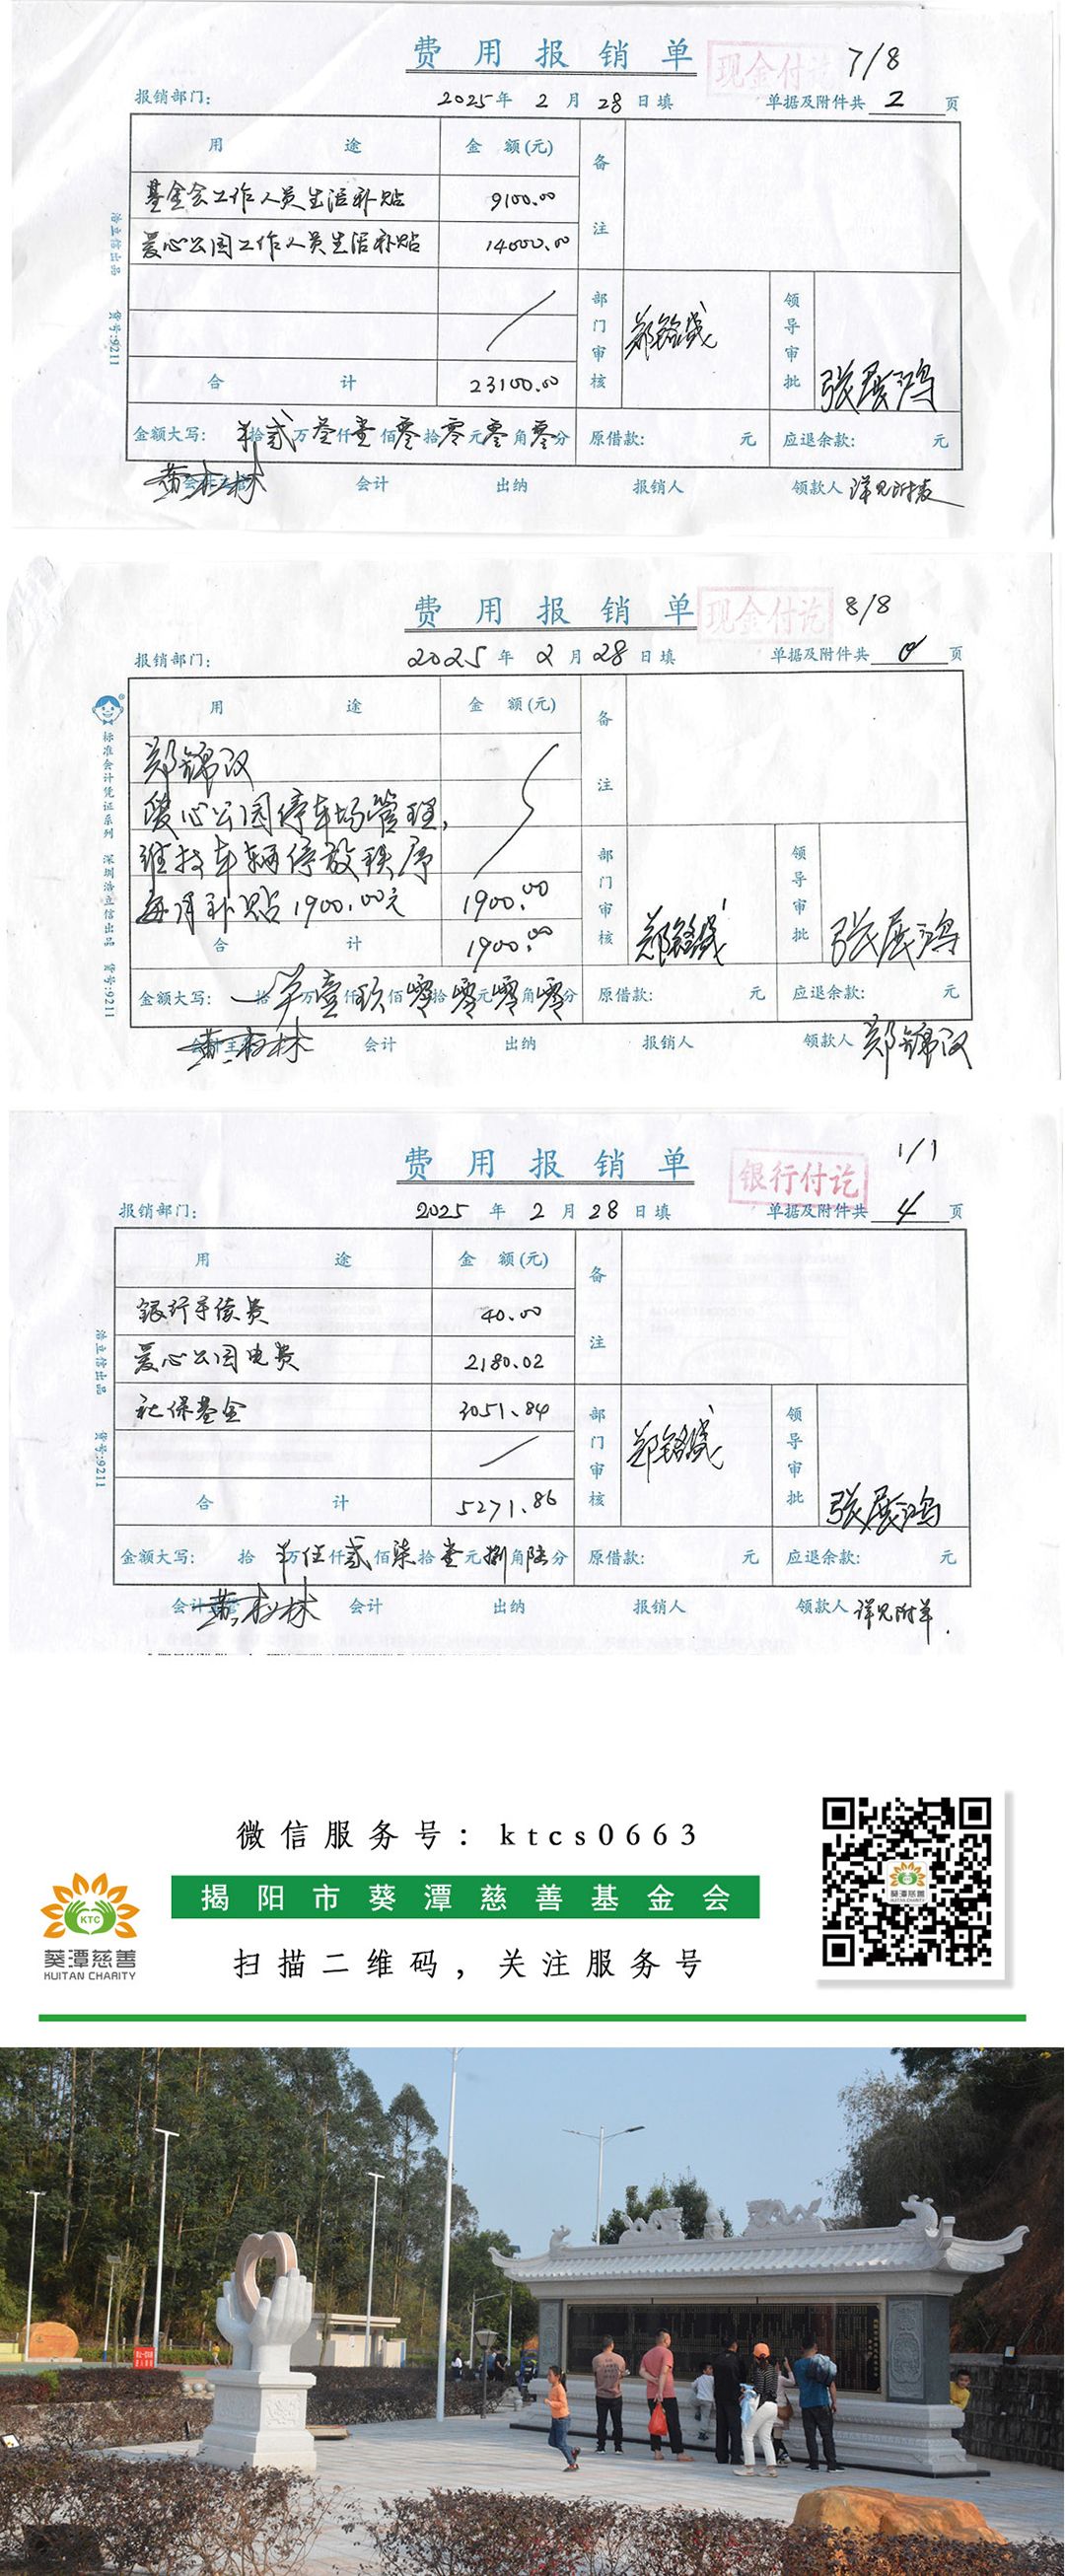 费用报销单 现金付讫 7/8
报销部门: 2025年 2 月 28 日填 单据及附件共 2 页
用途 金额(元) 备注
基金会工作人员生活补贴 9100.00
爱心公园工作人员生活补贴 14000.00
部门审核 郑铭盛 领导审批 张展鸿
合计 23100.00
金额大写: 拾贰万叁仟壹佰零拾零元零角零分 原借款: 元 应退余款: 元
会计 出纳 报销人 领款人 详见附表
浩立信出品 货号:9211
费用报销单 现金付讫 8/8
报销部门: 2025 年 2 月 28 日填 单据及附件共 0 页
用途 金额(元) 备注
郑锦汉
爱心公园停车场管理,
维持车辆停放秩序
每月补贴1900.00元 1900.00
合计 1900.00
部门审核 郑铭盛 领导审批 张展鸿
金额大写: 拾万壹仟玖佰零拾零元零角零分 原借款: 元 应退余款: 元
会计主管 会计 出纳 报销人 领款人 郑锦汉
标准会计凭证系列 深圳浩立信出品 货号:9211
费用报销单 银行付讫 1/1
报销部门: 2025 年 2 月 28 日填 单据及附件共 4 页
用途 金额(元) 备注
银行手续费 40.00
爱心公园电费 2180.02
社保基金 3051.84
部门审核 郑铭盛 领导审批 张展鸿
合计 5271.86
金额大写: 拾万伍仟贰佰柒拾壹元捌角陆分 原借款: 元 应退余款: 元
会计主管 会计 出纳 报销人 领款人 详见附单.
浩立信出品 货号:9211
微信服务号: ktcs0663
揭阳市葵潭慈善基金会
扫描二维码, 关注服务号
KTC
葵潭慈善
KUITAN CHARITY
葵潭慈善